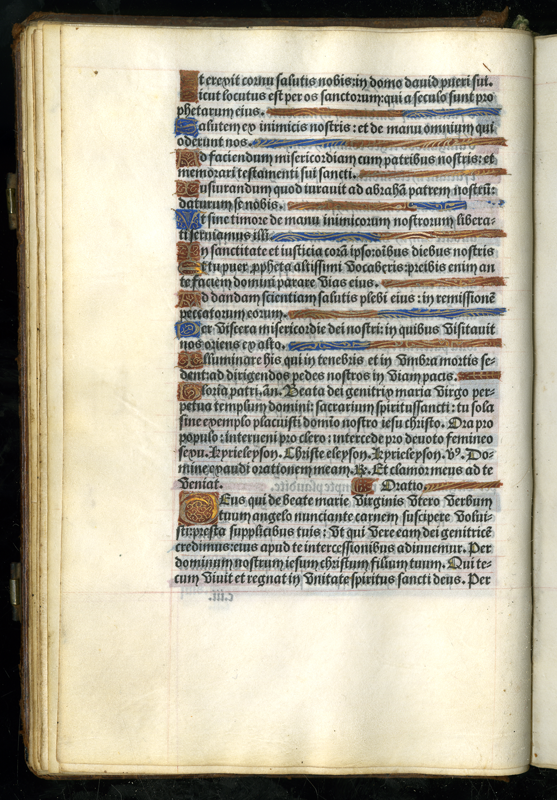 Et erexit cornu salutis nobis: in domo david pueri sui.
Sicut locutus est per os sanctorum: qui a seculo sunt pro
phetarum eius.
Salutem ex inimicis nostris: et de manu omnium qui
oderunt nos.
Ad faciendum misericordiam cum patribus nostris: et
memorari testamenti sui sancti.
Jusiurandum quod iurauit ad abrahã patrem nostrũ:
daturum se nobis.
Ut sine timore de manu inimicorum nostrorum libera-
ti seruiamus illi
In sanctitate et iusticia corã ipso: oĩbus diebus nostris
Et tu puer ꝓpheta altissimi vocaberis: preibis enim an
te faciem domini parare vias eius.
Ad dandam scientiam salutis plebi eius: in remissionẽ
peccatorum eorum.
Per viscera misericordie dei nostri: in quibus visitauit
nos oriens ex alto.
Illuminare his qui in tenebris et in vmbra mortis se-
dent: ad dirigendos pedes nostros in viam pacis.
Gloria patri. an. Beata dei genitrix maria virgo per-
petua templum domini: sacrarium spiritussancti: tu sola
sine exemplo placuisti domino nostro iesu christo. Ora pro
populo: interueni pro clero: intercede pro deuoto femineo
sexu. Kyrieleyson. Christe eleyson. Kyrieleyson. ℣. Do-
mine exaudi orationem meam. ℟. Et clamor meus ad te
veniat. Oratio.
DEus qui de beate marie virginis vtero verbum
tuum angelo nunciante carnem suscipere volui-
sti: presta supplicibus tuis: vt qui vere eam dei genitricẽ
credimus: eius apud te intercessionibus adiuuemur. Per
dominum nostrum iesum christum filium tuum. Qui te-
cum viuit et regnat in vnitate spiritus sancti deus. Per